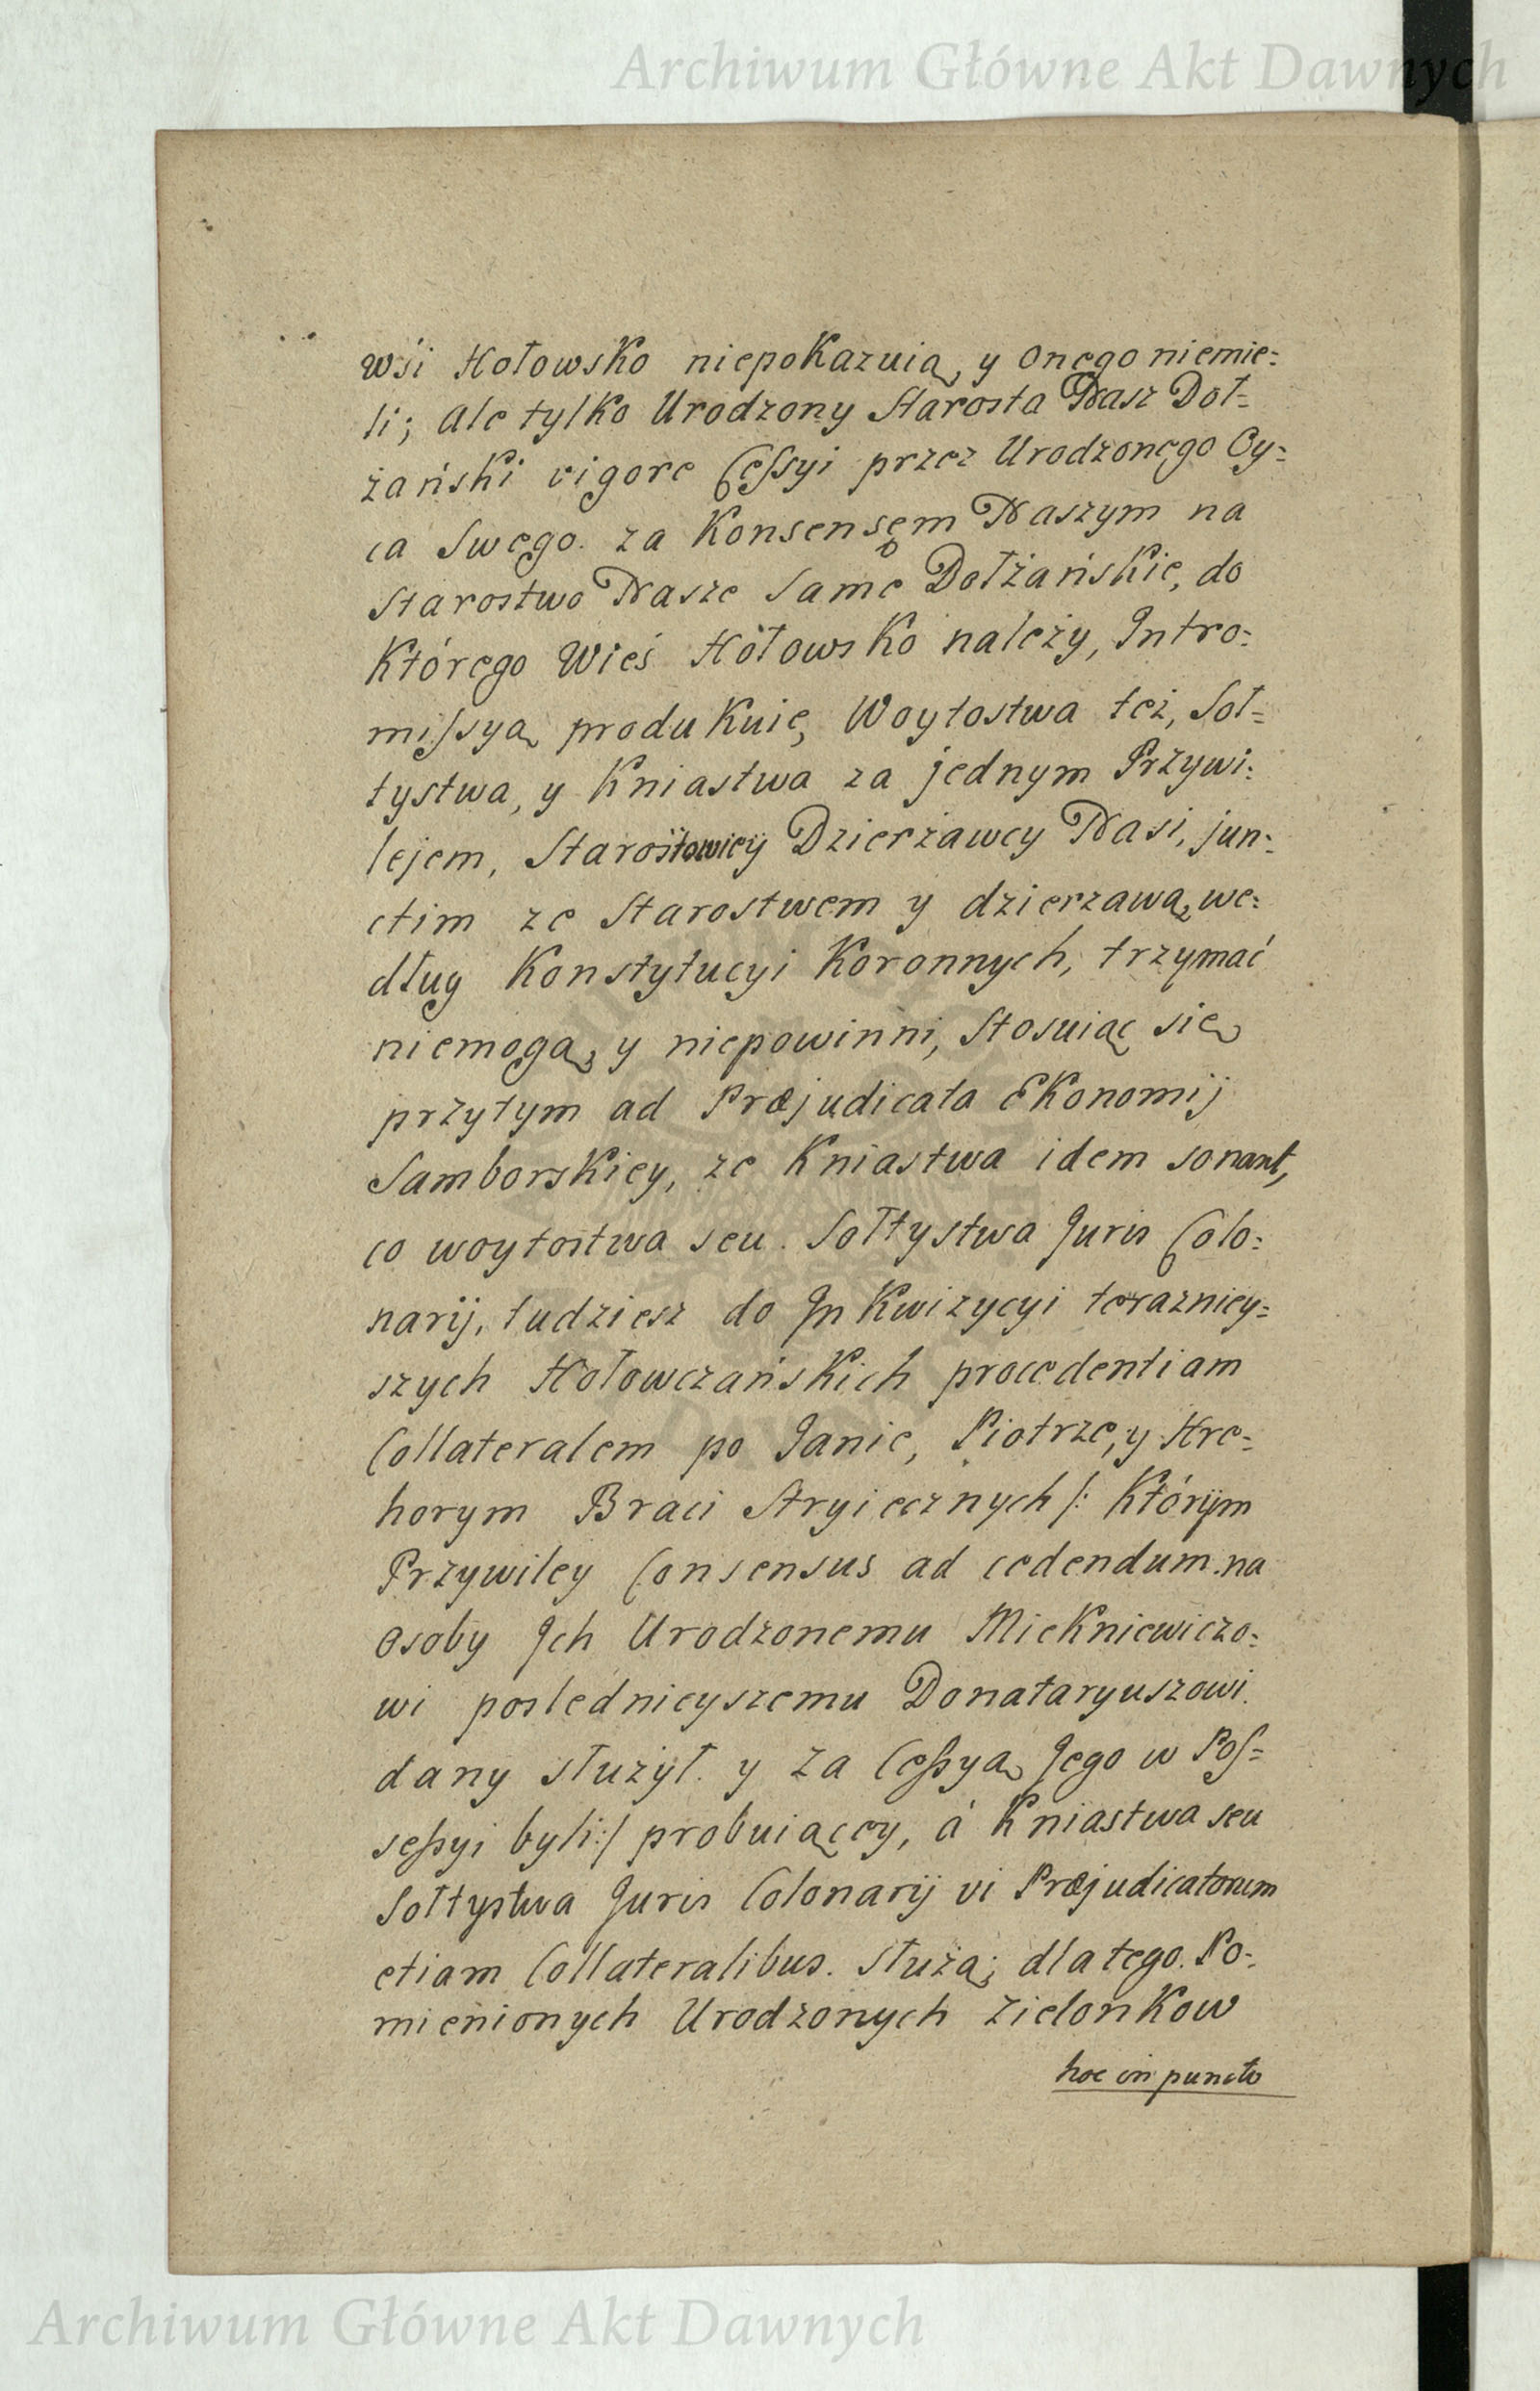 Archiwum Główne Akt Dawnych
Wsi Hołowsko niepokazuią, y onego niemie=
li; ale tylko Urodzony Starosta Nasz Doł=
żański vigore Cessyi przez Urodzonego Oy=
ca Swego. za Konsensem Naszym na
Starostwo Nasze Same Dołżańskie, do
Którego Wieś Hołowsko należy, Intro=
missyą produkuie, Woytostwa też, Soł=
tystwa, y Kniastwa za jednym Przywi=
lejem, Starostowiey Dzierżawcy Nasi, jun=
ctim ze Starostwem y dzierzawą, we=
dług Konstytucyi Koronnych, trzymać
niemogą, y niepowinni, Stosuiąc się
przytym ad Præjudicata Ekonomij
Samborskiey, że Kniastwa idem sonant,
co woytostwa seu. Sołtystwa Juris Colo=
narij, tudziesz do Inkwizycyi terazniey=
szych Hołowczańskich procedentiam
Collateralem po Janie, Piotrze, y Hre=
horym Braci Stryiecznych /: Którym
Przywiley Consensus ad cedendum na
osoby Ich Urodzonemu Miekniewiczo=
wi poslednieyszemu Donataryuszowi
dany służył. y za Cessyą Jego w Pos=
sessyi byli:/ probuiącey, á Kniastwa seu
Sołtystwa Juris Colonarij vi Præjudicatorum
etiam Collateralibus. służą; dlatego. Po=
mienionych Urodzonych Zielonkow
hoc in puncto
Archiwum Główne Akt Dawnych